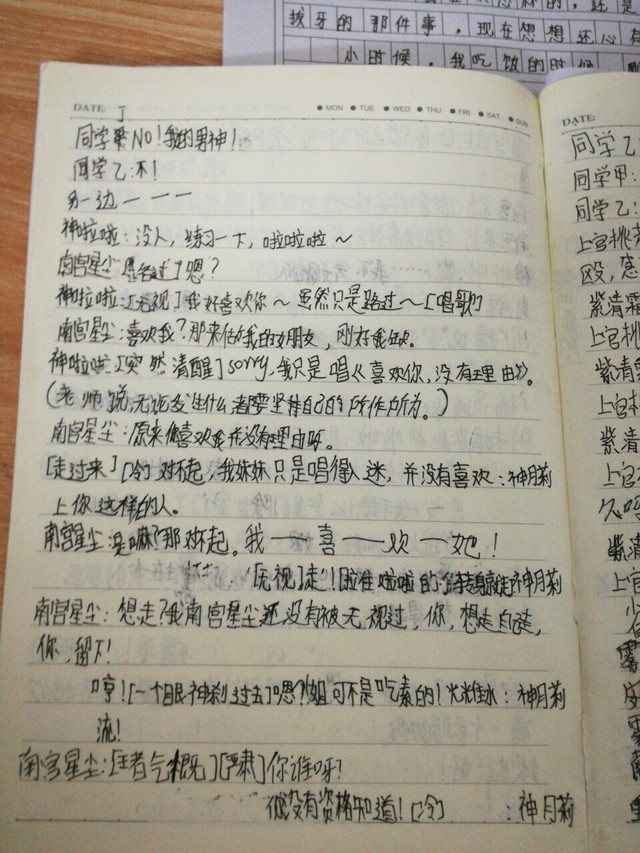 我牙的那件事,现在想想还心有
小时候,我吃饭的时候
DATE: 丁
MON TUE WED THU FRI SAT SUN
同学 NO!我的男神!
同学乙:不!
另一边一一一
神啦啦:没人,练习一下,啦啦啦~
南宫星尘:[路过]嗯?
神啦啦:[无视]我好喜欢你~虽然只是路过~[唱歌]
南宫星尘:喜欢我?那来做我的女朋友,刚好我缺。
神啦啦:[突然清醒]sorry.我只是唱《喜欢你,没有理由》。
(老师说,无论发生什么都要坚持自己的所作所为。)
南宫星尘:原来你喜欢我并没有理由呀。
[走过来][冷]对不起,我妹妹只是唱得入迷,并没有喜欢:神月莉
上你这样的人。
南宫星尘:是嘛?那对不起。我一喜一欢一她!
[无视]走![拉住啦啦的手转身就走]神月莉
南宫星尘:想走?我南宫星尘还没有被无视过,你,想走可走,
你,留下!
哼![一个眼神刹过去]嗯?姐可不是吃素的! :神月莉
流!
南宫星尘:[王者气概][严肃]你谁呀?
你没有资格知道![冷] :神月莉
DATE:
同学乙:
同学甲:
同学乙:
上官桃
殴,
紫清霜
上官桃
紫清霜
上官
紫清
上官
紫清
久
紫清
上官